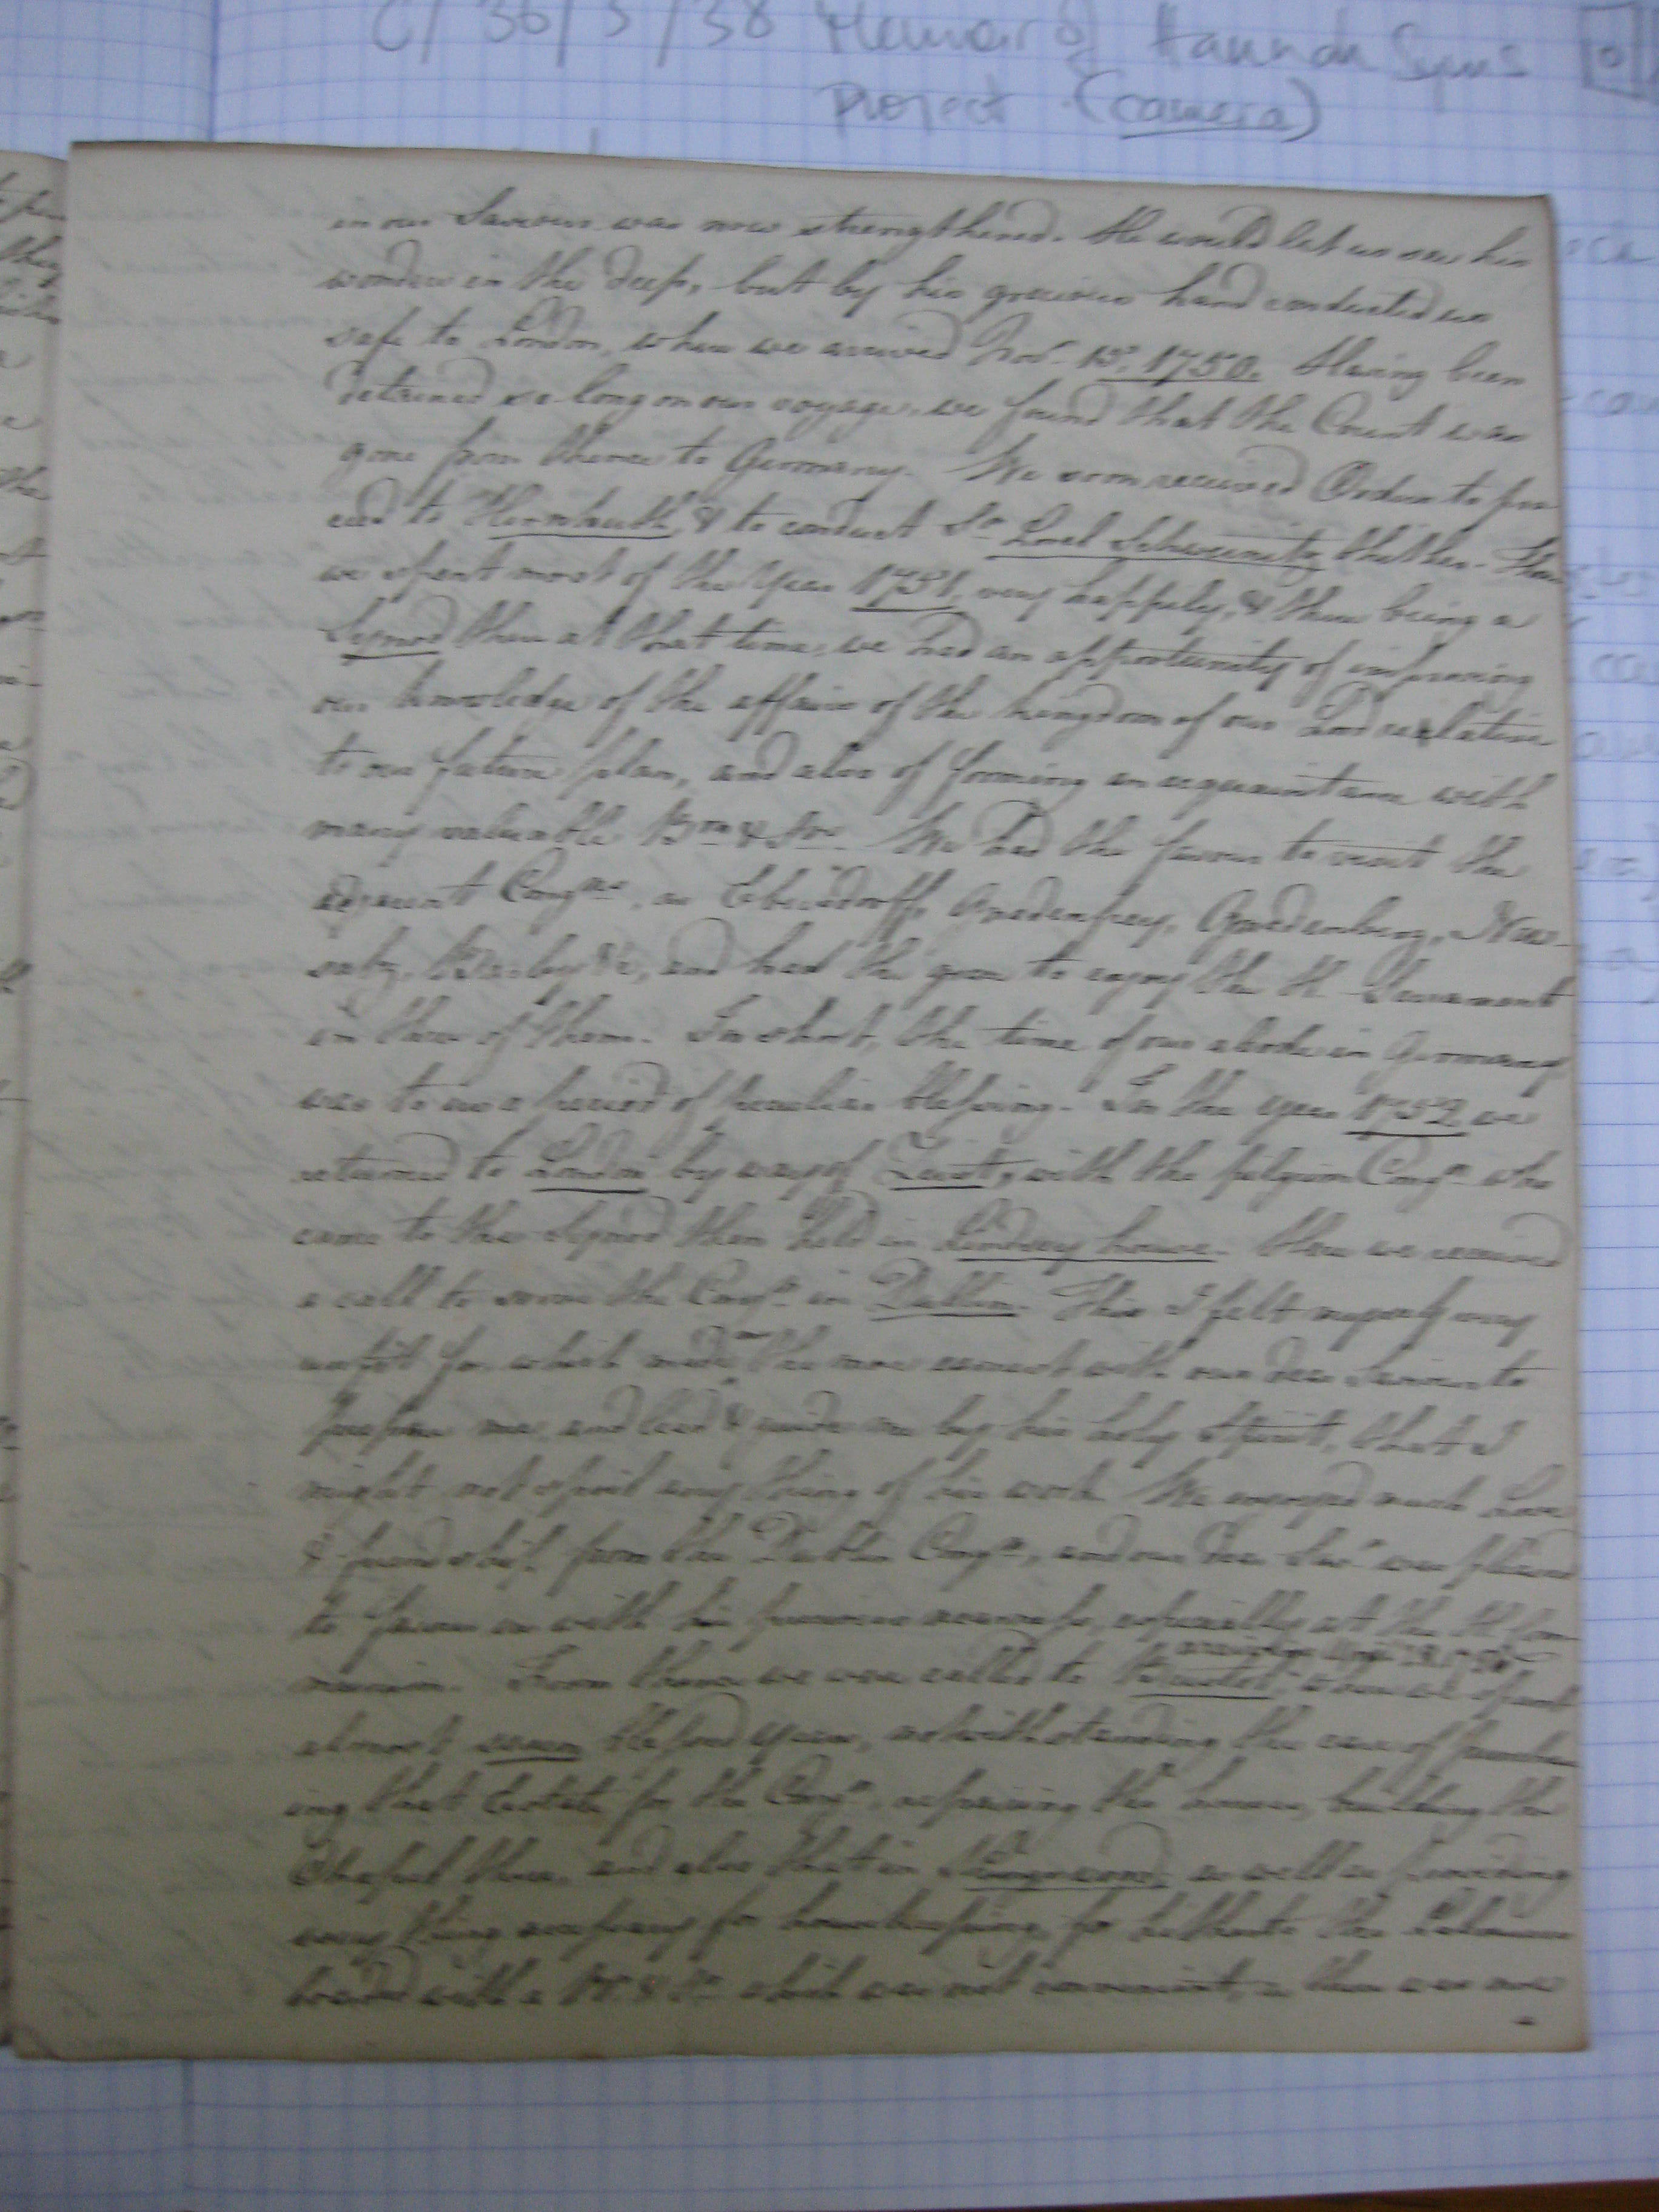 C/36/5/38 Memoir of Hannah Syms
Project (camera)
in our Saviour was now strengthened. He would let us see his
wonders in the deep, but by his gracious hand conducted us
safe to London, where we arrived Novr. 15, 1750. Having been
detained so long on our voyage, we found that the Count was
gone from thence to Germany. We soon received Orders to pro
ceed to Hernhuth, & to conduct Sr. Schweinitz thither. There
we spent most of the Year 1751, very happily, & there being a
Synod there at that time, we had an opportunity of improving
our knowledge of the affairs of the kingdom of our Lord relative
to our future plan, and also of forming an acquaintance with
many valuable Brn & Srs. We had the favour to visit the
adjacent Congns, as Ebersdorff, Gnadenfrey, Gnadenberg, New-
salz, Barby &c, and had the grace to enjoy the H. Sacrament
in three of them. In short, the time of our abode in Germany
was to us a period of peculiar blessing. In the year 1752 we
returned to London by way of Zeist, with the pilgrim Congn. who
came to the Synod then held in Lindsey house. Here we received
a call to serve the Congn. in Dublin. This I felt myself very
unfit for, which made me the more earnest with our dear Saviour to
prepare me, and lead & guide me by his holy Spirit, that I
might not spoil any thing of his work. We enjoyed much Love
& friendship from the Dublin Congn, and our dear Savr was pleased
to favour us with his precious nearness, especially at the H. Com
munion. From thence we were called to Bristol, where we spent
almost seven blessed years, notwithstanding the care of purchas
ing that Estate for the Congn, repairing the house, building the
Chapel there, and also that in Kingswood, as well as providing
every thing necessary for housekeeping, for hitherto the Labourers
boarded with a Br. & Sr. which was not convenient, as there was now